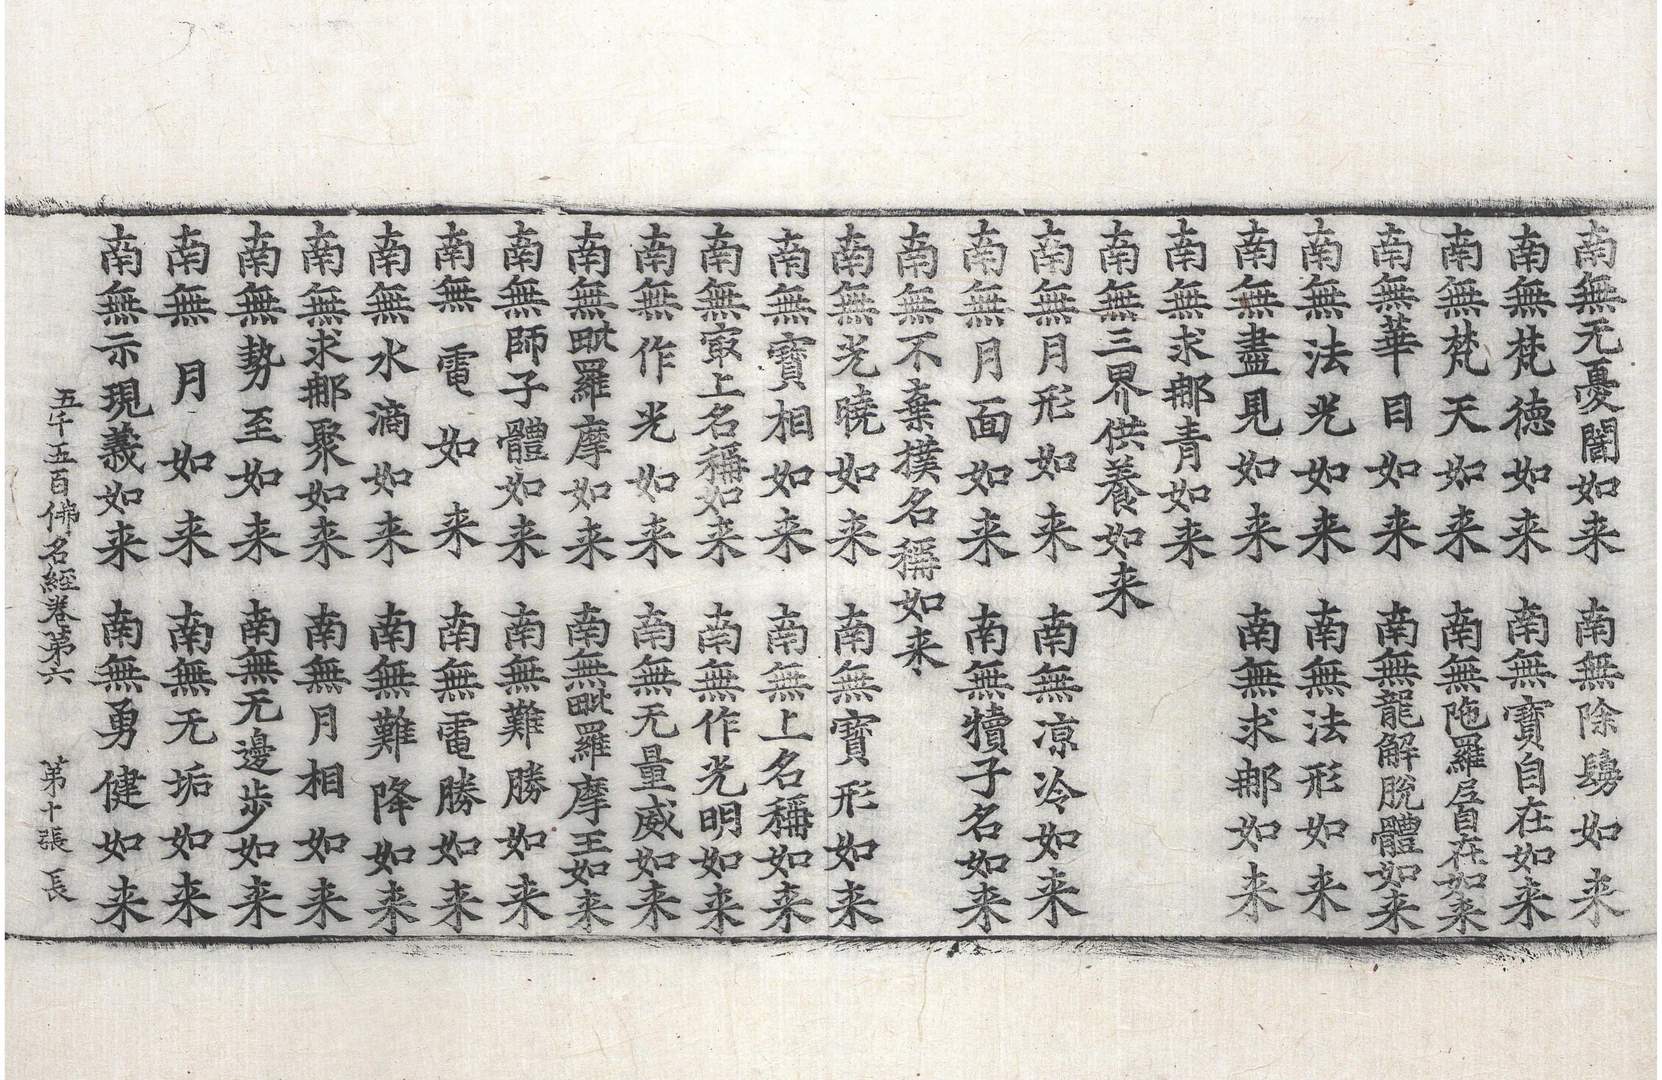 南無无憂闇如来 南無除鬘如来
南無梵德如来 南無寶自在如来
南無梵天如来 南無陁羅層自在如来
南無華目如来 南無龍解脫體如来
南無法光如来 南無法形如来
南無盡見如来 南無求𨚗如来
南無求𨚗青如来
南無三界供養如来
南無月形如来 南無凉冷如来
南無月面如来 南無犢子名如来
南無不棄撲名稱如来
南無光曉如来 南無寶形如来
南無寶相如来 南無上名稱如来
南無㝡上名稱如来 南無作光明如来
南無作光如来 南無无量威如来
南無毗羅摩如来 南無毗羅摩王如来
南無師子體如来 南無難勝如来
南無電如来 南無電勝如来
南無水滴如来 南無難降如来
南無求𨚗聚如来 南無月相如来
南無勢至如来 南無无邊步如来
南無月如来 南無无垢如来
南無示現義如来 南無勇健如来
五千五百佛名經卷第六 第十張 長